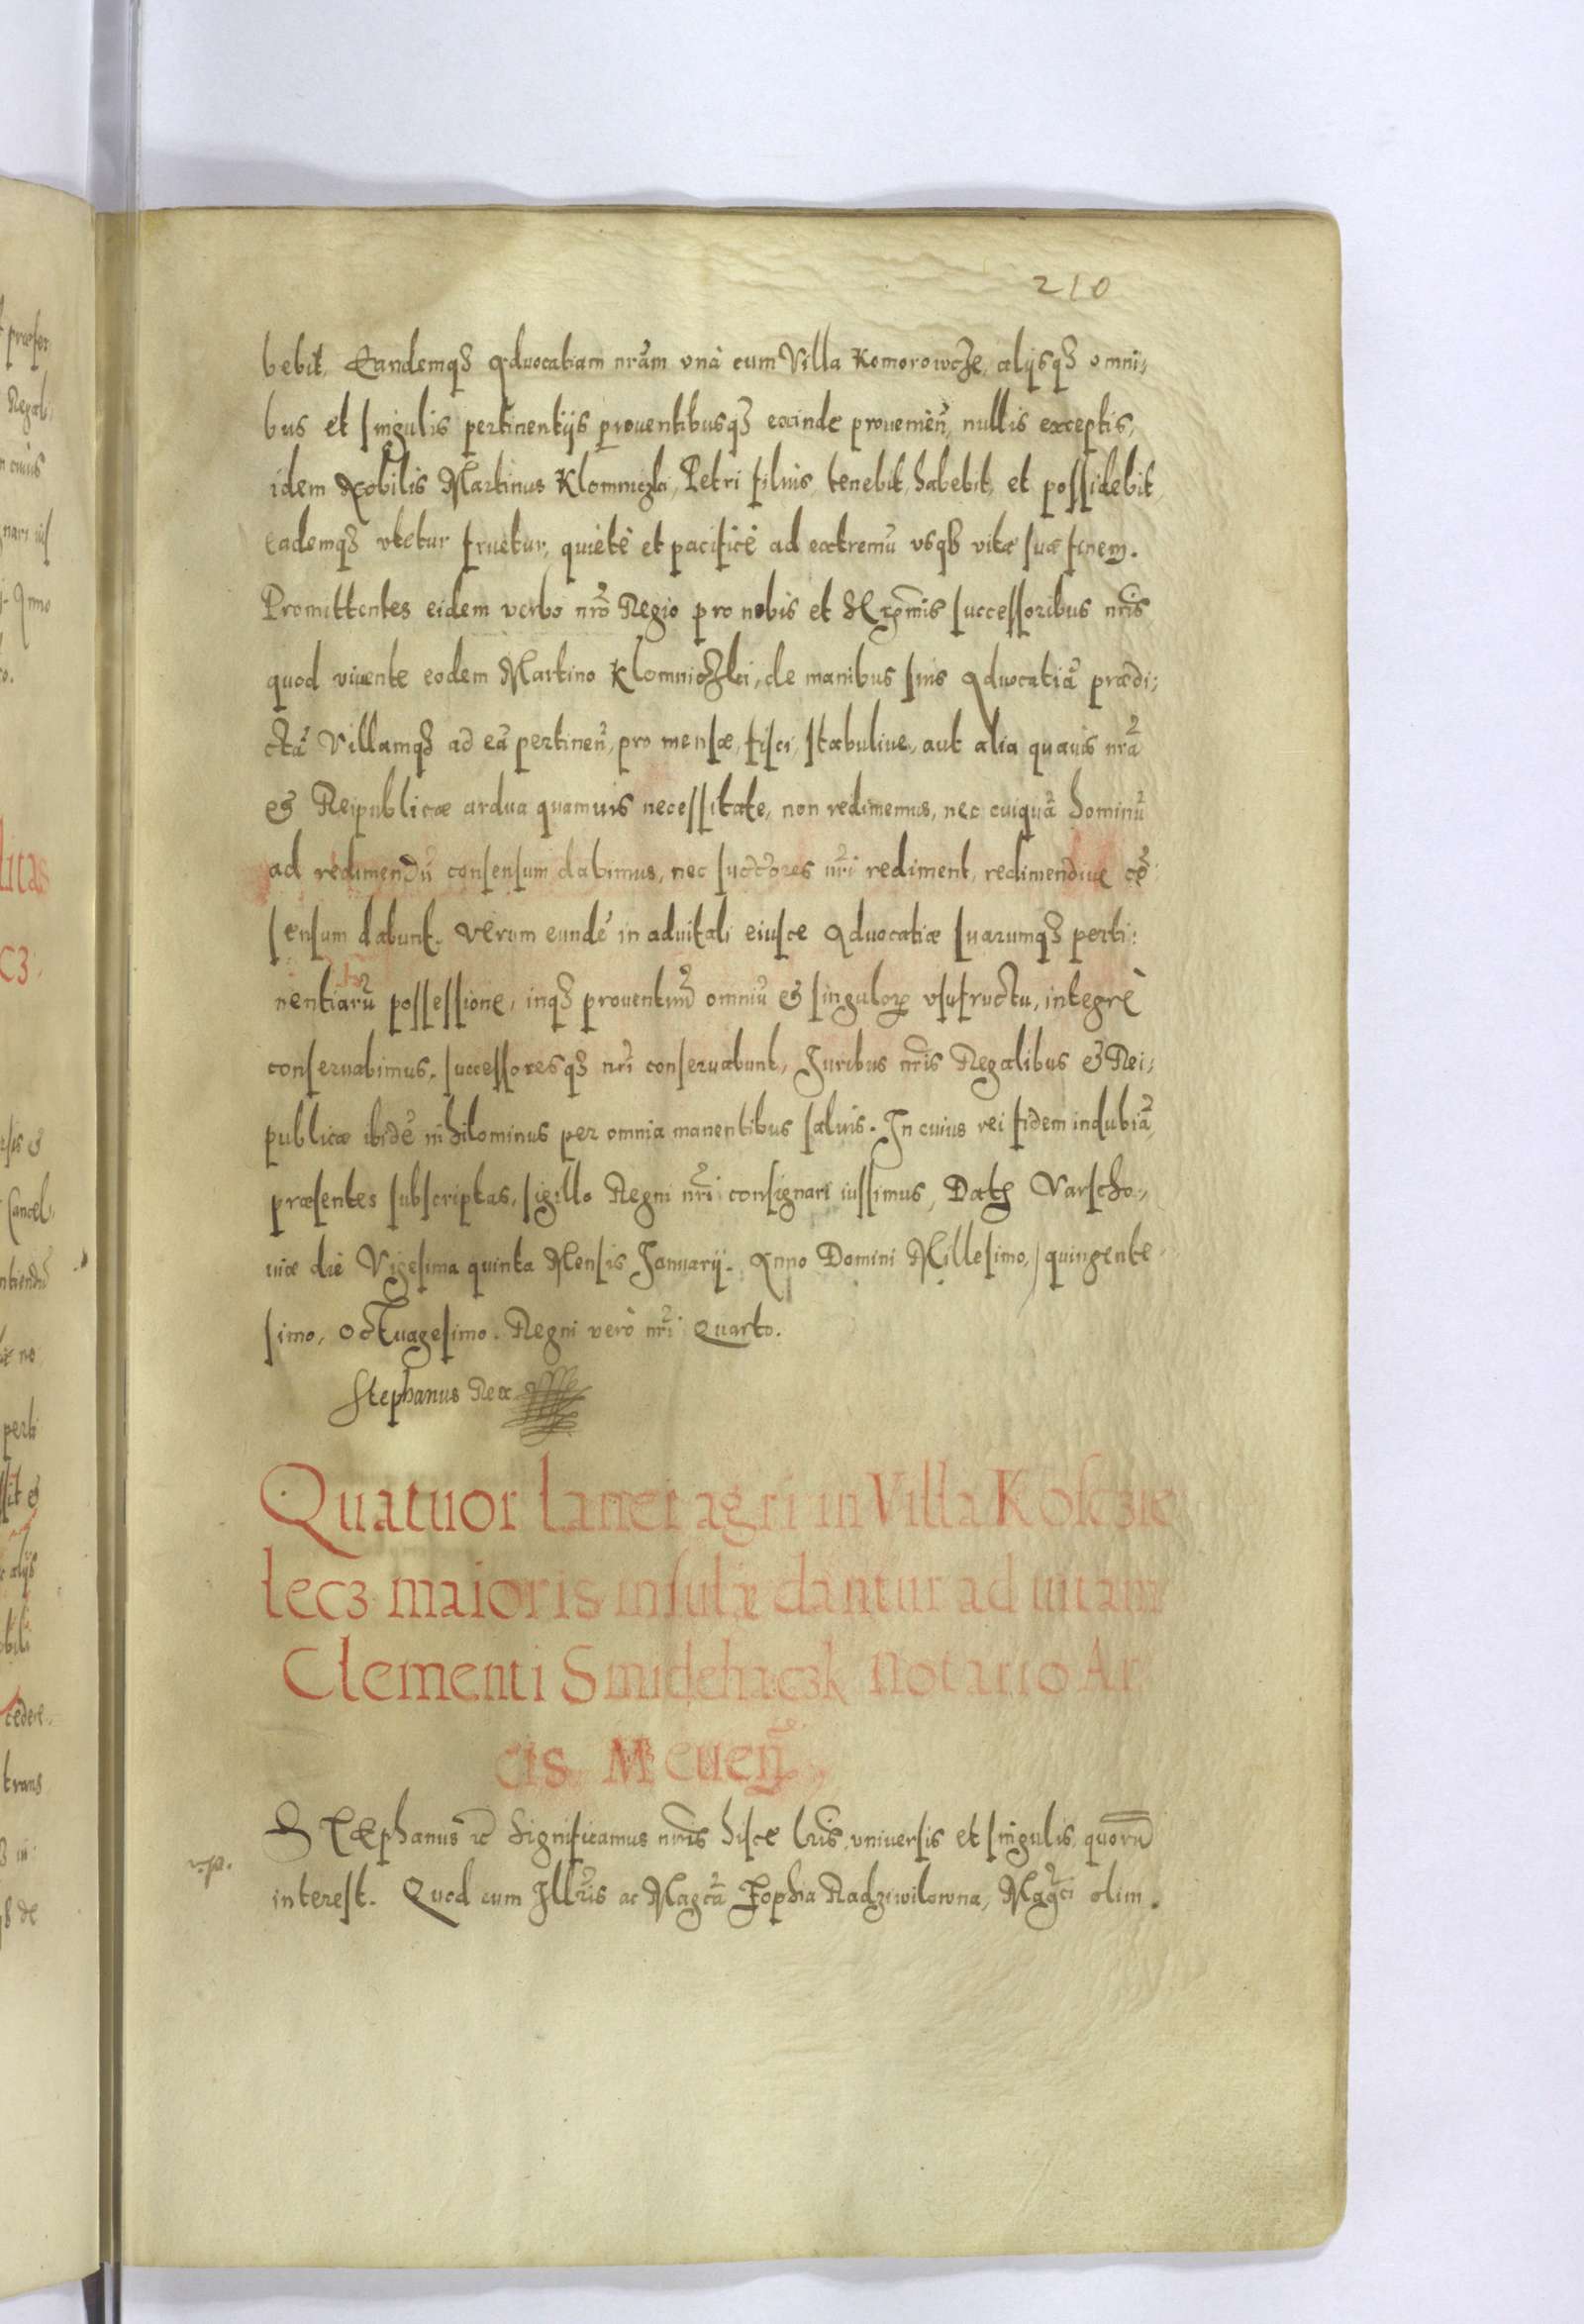 210
bebit, Eandemq3 Aduocatiam nrãm vnà cum Villa Komorowcze, alijsq3 omni;
bus et singulis pertinentijs prouentibusq3 exinde prouenieñ, nullis exceptis,
idem Nobilis Martinus Klomniczki, Petri filius, tenebit, habebit, et possidebit,
eademq3 vtetur fruetur, quietè et pacificè ad extremũ vsq3 vitæ suæ finem.
Promittentes eidem verbo nrõ Regio pro nobis et Serẽmis successoribus nrĩs
quod viuente eodem Martino Klomniczki, de manibus suis Aduocatiã prædi;
ctã Villamq3 ad eã pertineñ, pro mensæ, fisci, stabuliue, aut alia quauis nrã
& Reipublicæ ardua quamuis necessitate, non redimemus, nec cuiquã hominũ
ad redimendũ consensum dabimus, nec succores nrĩ rediment, redimendiue cõ
sensum dabunt. Verum eundẽ in aduitali eiusce Aduocatiæ suarumq3 perti:
nentiarũ possessione, inq3 prouentuũ omniũ & singulorꝝ vsufructu, integrè
conseruabimus, successoresq3 nrĩ conseruabunt, Juribus nrĩs Regalibus & Rei;
publicæ ibidẽ nihilominus per omnia manentibus saluis. In cuius rei fidem indubiã,
præsentes subscriptas, sigillo Regni nrĩ consignari iussimus, Datę Varscho;
uiæ die Vigesima quinta Mensis Januarij. Anno Domini Millesimo, quingente
simo, Octuagesimo. Regni verò nrĩ Quarto.
Stephanus Rex
Quatuor lanei agri in Villa Kosczie
lecz maioris insulæ dantur ad uitam
Clementi Notario Ar
cis Meueñ
Stephanus &c Significamus nrĩs hisce lrĩs, vniuersis et singulis, quorũ
interest. Quod cum Illrĩs ac Magcã Zophia Radziwilowna, Magcĩ olim.